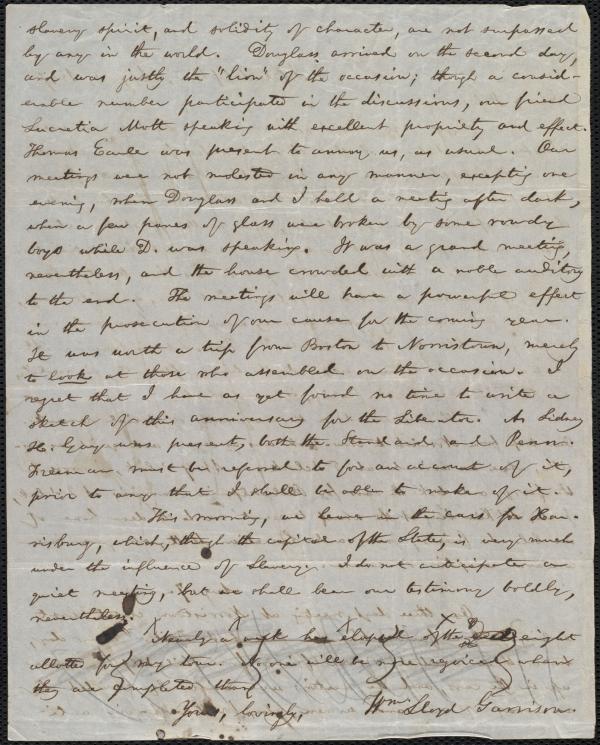 slavery spirit, and solidity of character, are not surpassed
by any in the world. Douglass arrived on the second day,
and was justly the "lion" of the occasion; though a consid-
erable number participated in the discussions, our friend
Lucretia Mott speaking with excellent propriety and effect.
Thomas Earle was present to annoy us, as usual. Our
meetings were not molested in any manner, excepting one
evening, when Douglass and I held a meeting after dark,
when a few panes of glass were broken by some rowdy
boys while D. was speaking. It was a grand meeting,
nevertheless, and the house crowded with a noble auditory
to the end. The meetings will have a powerful effect
in the prosecution of our cause for the coming year.
It was worth a trip from Boston to Norristown, merely
to look at those who assembled on the occasion. I
regret that I have as yet found no time to write a
sketch of this anniversary for the Liberator. As Sidney
H. Gay was present, both the Standard and Penn.
Freeman must be referred to for an account of it,
prior to any that I shall be able to make of it.
This morning, we leave in the cars for Har-
risburg, which, though the capital of the State, is very much
under the influence of Slavery. I do not anticipate a
quiet meeting, but we shall bear our testimony boldly,
nevertheless.
Nearly a week has elapsed of the eight
allotted for my tour. No one will be more rejoiced when
they are completed than
Yours, lovingly, Wm. Lloyd Garrison.